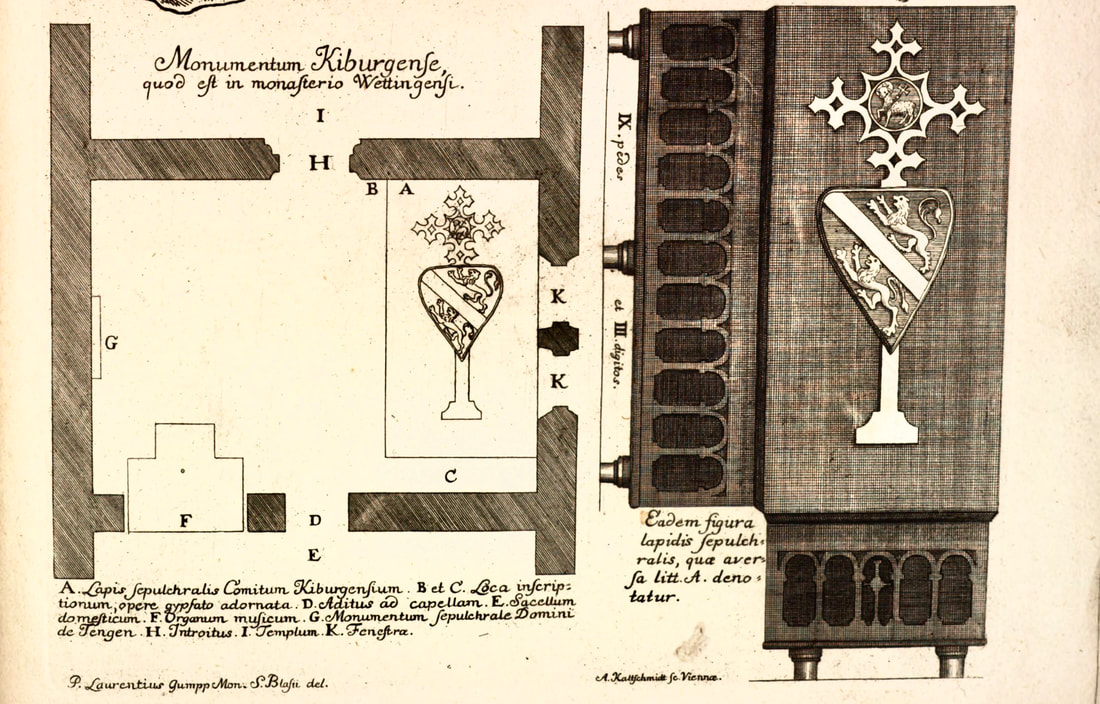 Monumentum Kiburgenſe,
quod eſt in monaſterio Wettingenſi.
I
H
B A
K
G
K
C
F D
E
A. Lapis ſepulchralis Comitum Kiburgenſium. B et C. Loca inſcrip:
tionum, opere gypſato adornata. D. Aditus ad capellam. E. Sacellum
domeſticum. F. Organum muſicum. G. Monumentum ſepulchrale Domini
de Tengen. H. Introitus. I. Templum. K. Feneſtra.
P. Laurentius Gumpp Mon. S. Blaſii del.
IX. pedes
et III. digitos.
Eadem figura
lapidis ſepulch:
ralis, quæ aver:
ſa litt. A. deno:
tatur.
A. Kaltſchmidt ſc. Viennæ.